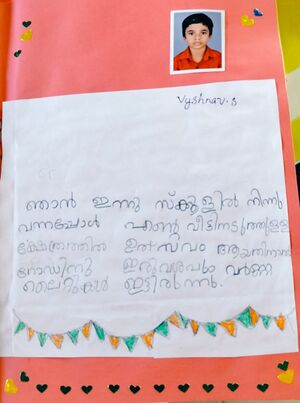 Vyshnav.S
ഞാൻ ഇന്നു സ്കൂളിൽ നിന്നു
വന്നപ്പോൾ എന്റെ വീടിനടുത്തുള്ള
ക്ഷേത്രത്തിൽ ഉത്സവം ആയതിനാൽ
റോഡിനു ഇരുവശവും വർണ്ണ
ലൈറ്റുകൾ ഇട്ടിരുന്നു.